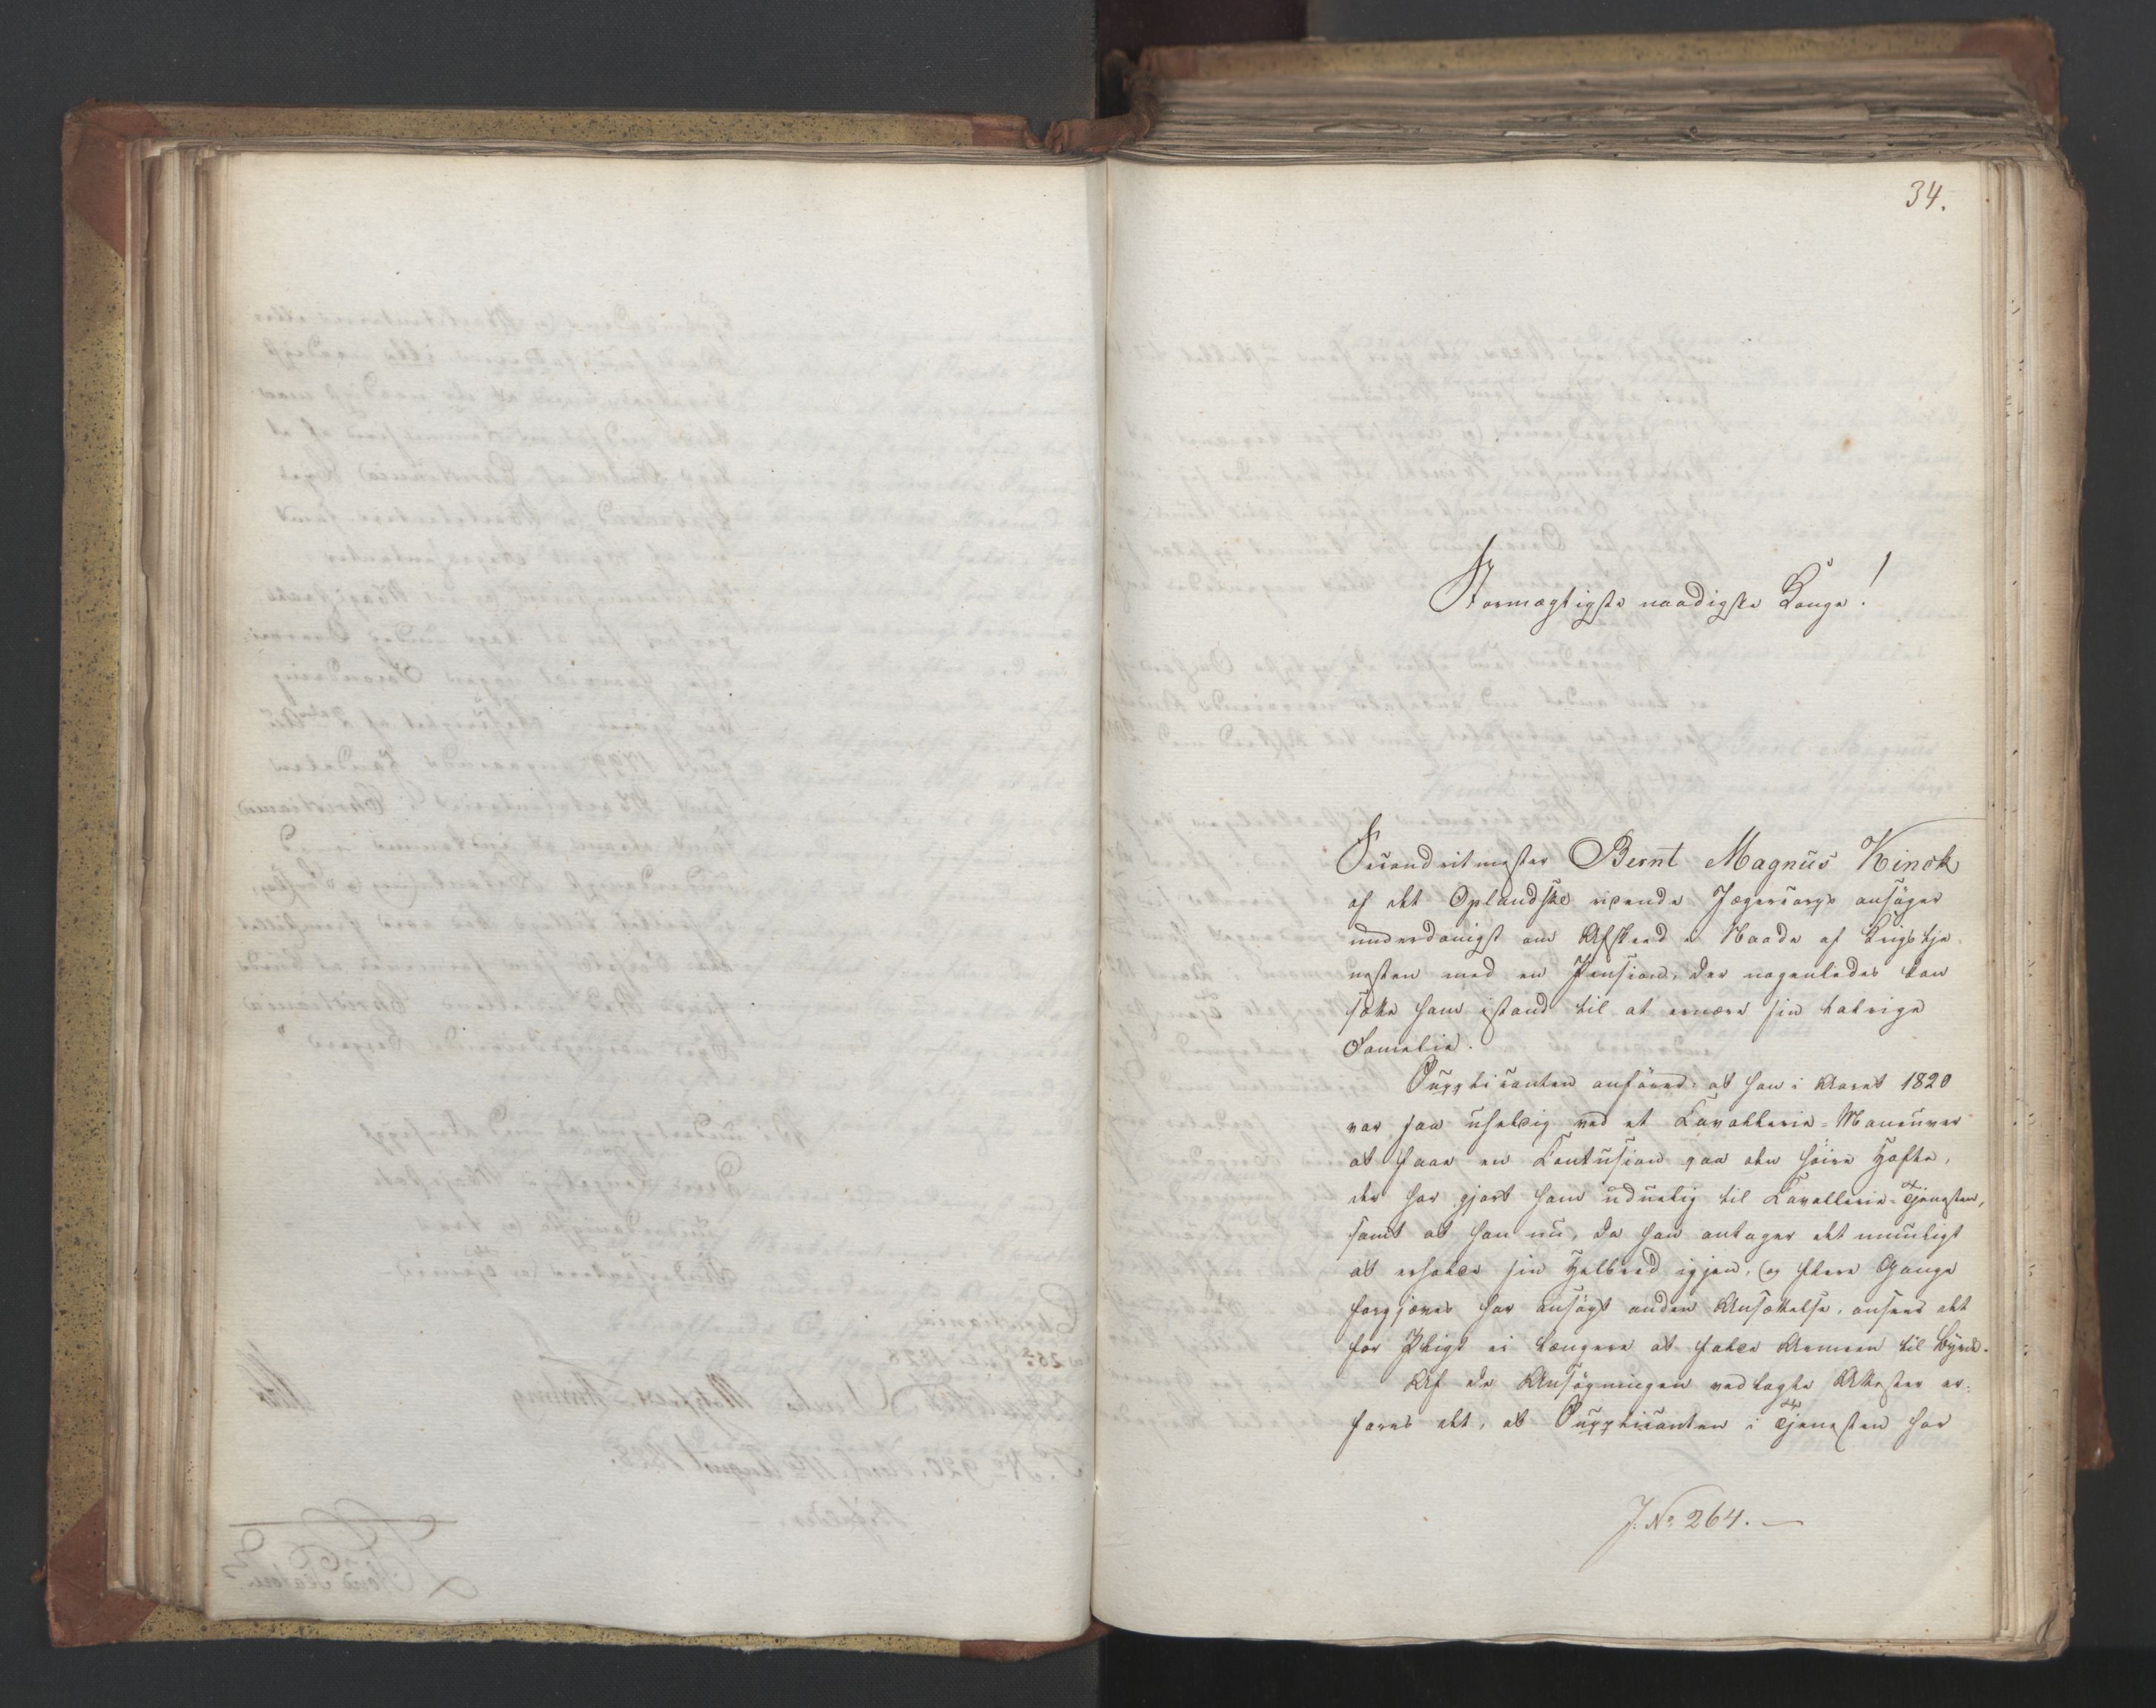 34.
Stormægtigste naadigste Konge!
Secondritmester Bernt Magnus Kinck
af det Oplandske ridende Jægercorps ansøger
underdanigst om Afskeed i Naade af Krigstje-
nesten med en Pension, der nogenledes kan
sætte ham istand til at ernære sin talrige
Familie.
Supplicanten anfører: at han i Aaret 1820
var saa uheldig ved et Cavallerie-Maneuver
at faae en Contusion paa den høire Hofte,
der har gjort ham uduelig til Cavallerie-Tjenesten,
samt at han nu, da han antager det umuligt
at erholde sin Helbred igjen, og flere Gange
forgjæves har ansøgt anden Ansættelse, ansees det
for Pligt ei længere at falde Armeen til Byrde.
Af de Ansøgningen vedlagte Attester er-
fares det, at Supplicanten i Tjenesten har
J. No. 264.